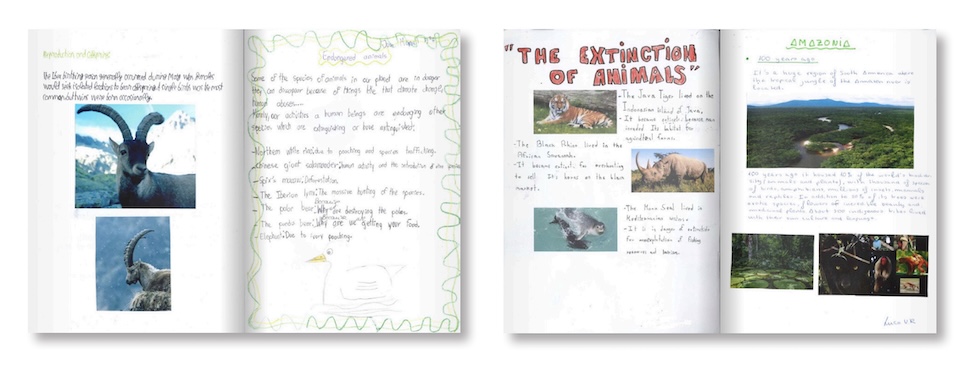 Reproduction and Offspring
The Ibex birthing season generally occurred during May when females
would seek isolated locations to bear offspring. Single births were the most
common, but twins were born occasionally.
Endangered animals
Some of the species of animals in our planet are in danger
they can disappear because of things like that climate changes,
human abuses....
Mainly, our activities a human beings are endangering other
species which are extinguishing or have extinguished;
-Northern white rhino: due to poaching and species trafficking.
-Chinese giant salamander: human activity and the introduction of new species
-Spix's macaw: Deforestation.
-The Iberian lynx: The massive hunting of the species.
-The polar bear: Because we are destroying the poles.
-The panda bear: Because we are getting your food.
-Elephant: Due to ivory poaching.
"THE EXTINCTION
OF ANIMALS"
-The Java Tiger lived on the
Indonesian Island of Java.
- It became extinct: because man
invaded its habitat for
agricultural farms.
- The Black Rhino lived in the
African Savannahs.
- It became extinct: for poaching
to sell its horns on the black
market.
- The Monk Seal lived in
Mediterranean waters.
- It is in danger of extinction
for overexploitation of fishing
resources and tourism.
AMAZONIA
• 400 years ago.
It's a huge region of South America where
the tropical jungle of the Amazon river is
located.
400 years ago it housed 10% of the world's biodiver-
sity (animals and plants), with thousands of species
of birds, amphibians, millions of insects, mammals
and reptiles. In addition to 10% of its trees were
exotic species, flowers of incredible beauty and
medicinal plants. About 300 indigenous tribes lived
with their own culture and language.
Luca V.R.